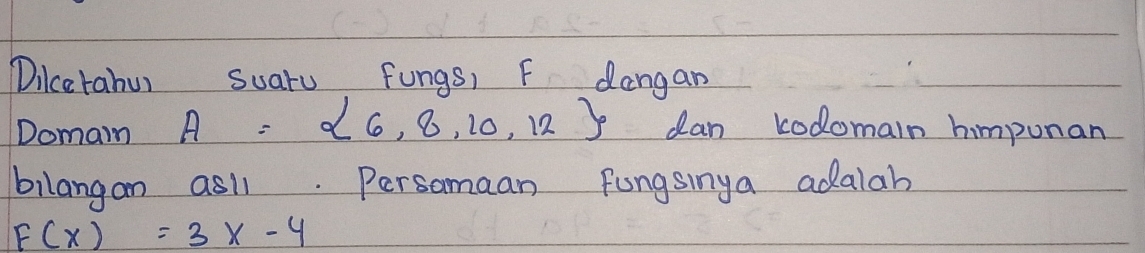 Diketahui suatu fungsi F dengan
Domain A = { 6, 8, 10, 12 } dan kodomain himpunan
bilangan asli . Persamaan fungsinya adalah
F(x) = 3x - 4